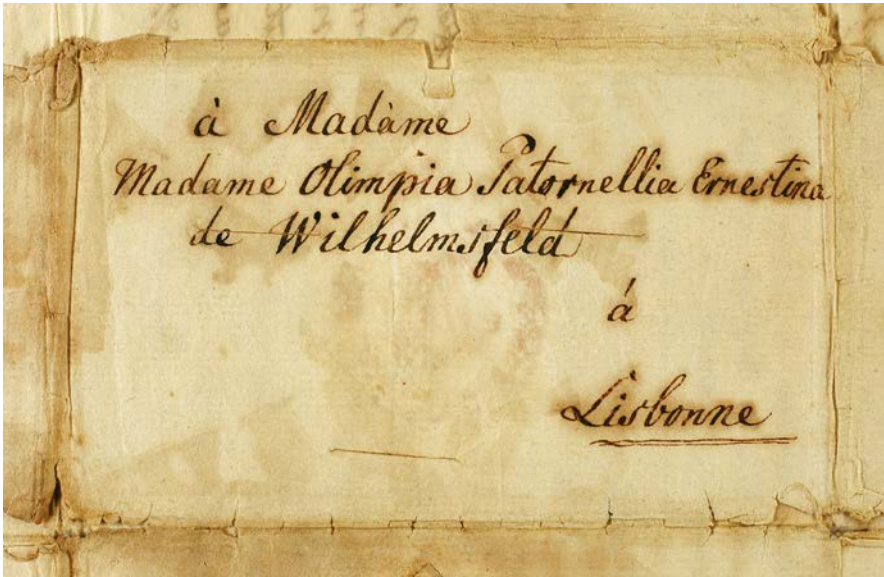 à Madàme
Madame Olimpia Patornellia Ernestina
de Wilhelmsfeld
á
Lisbonne